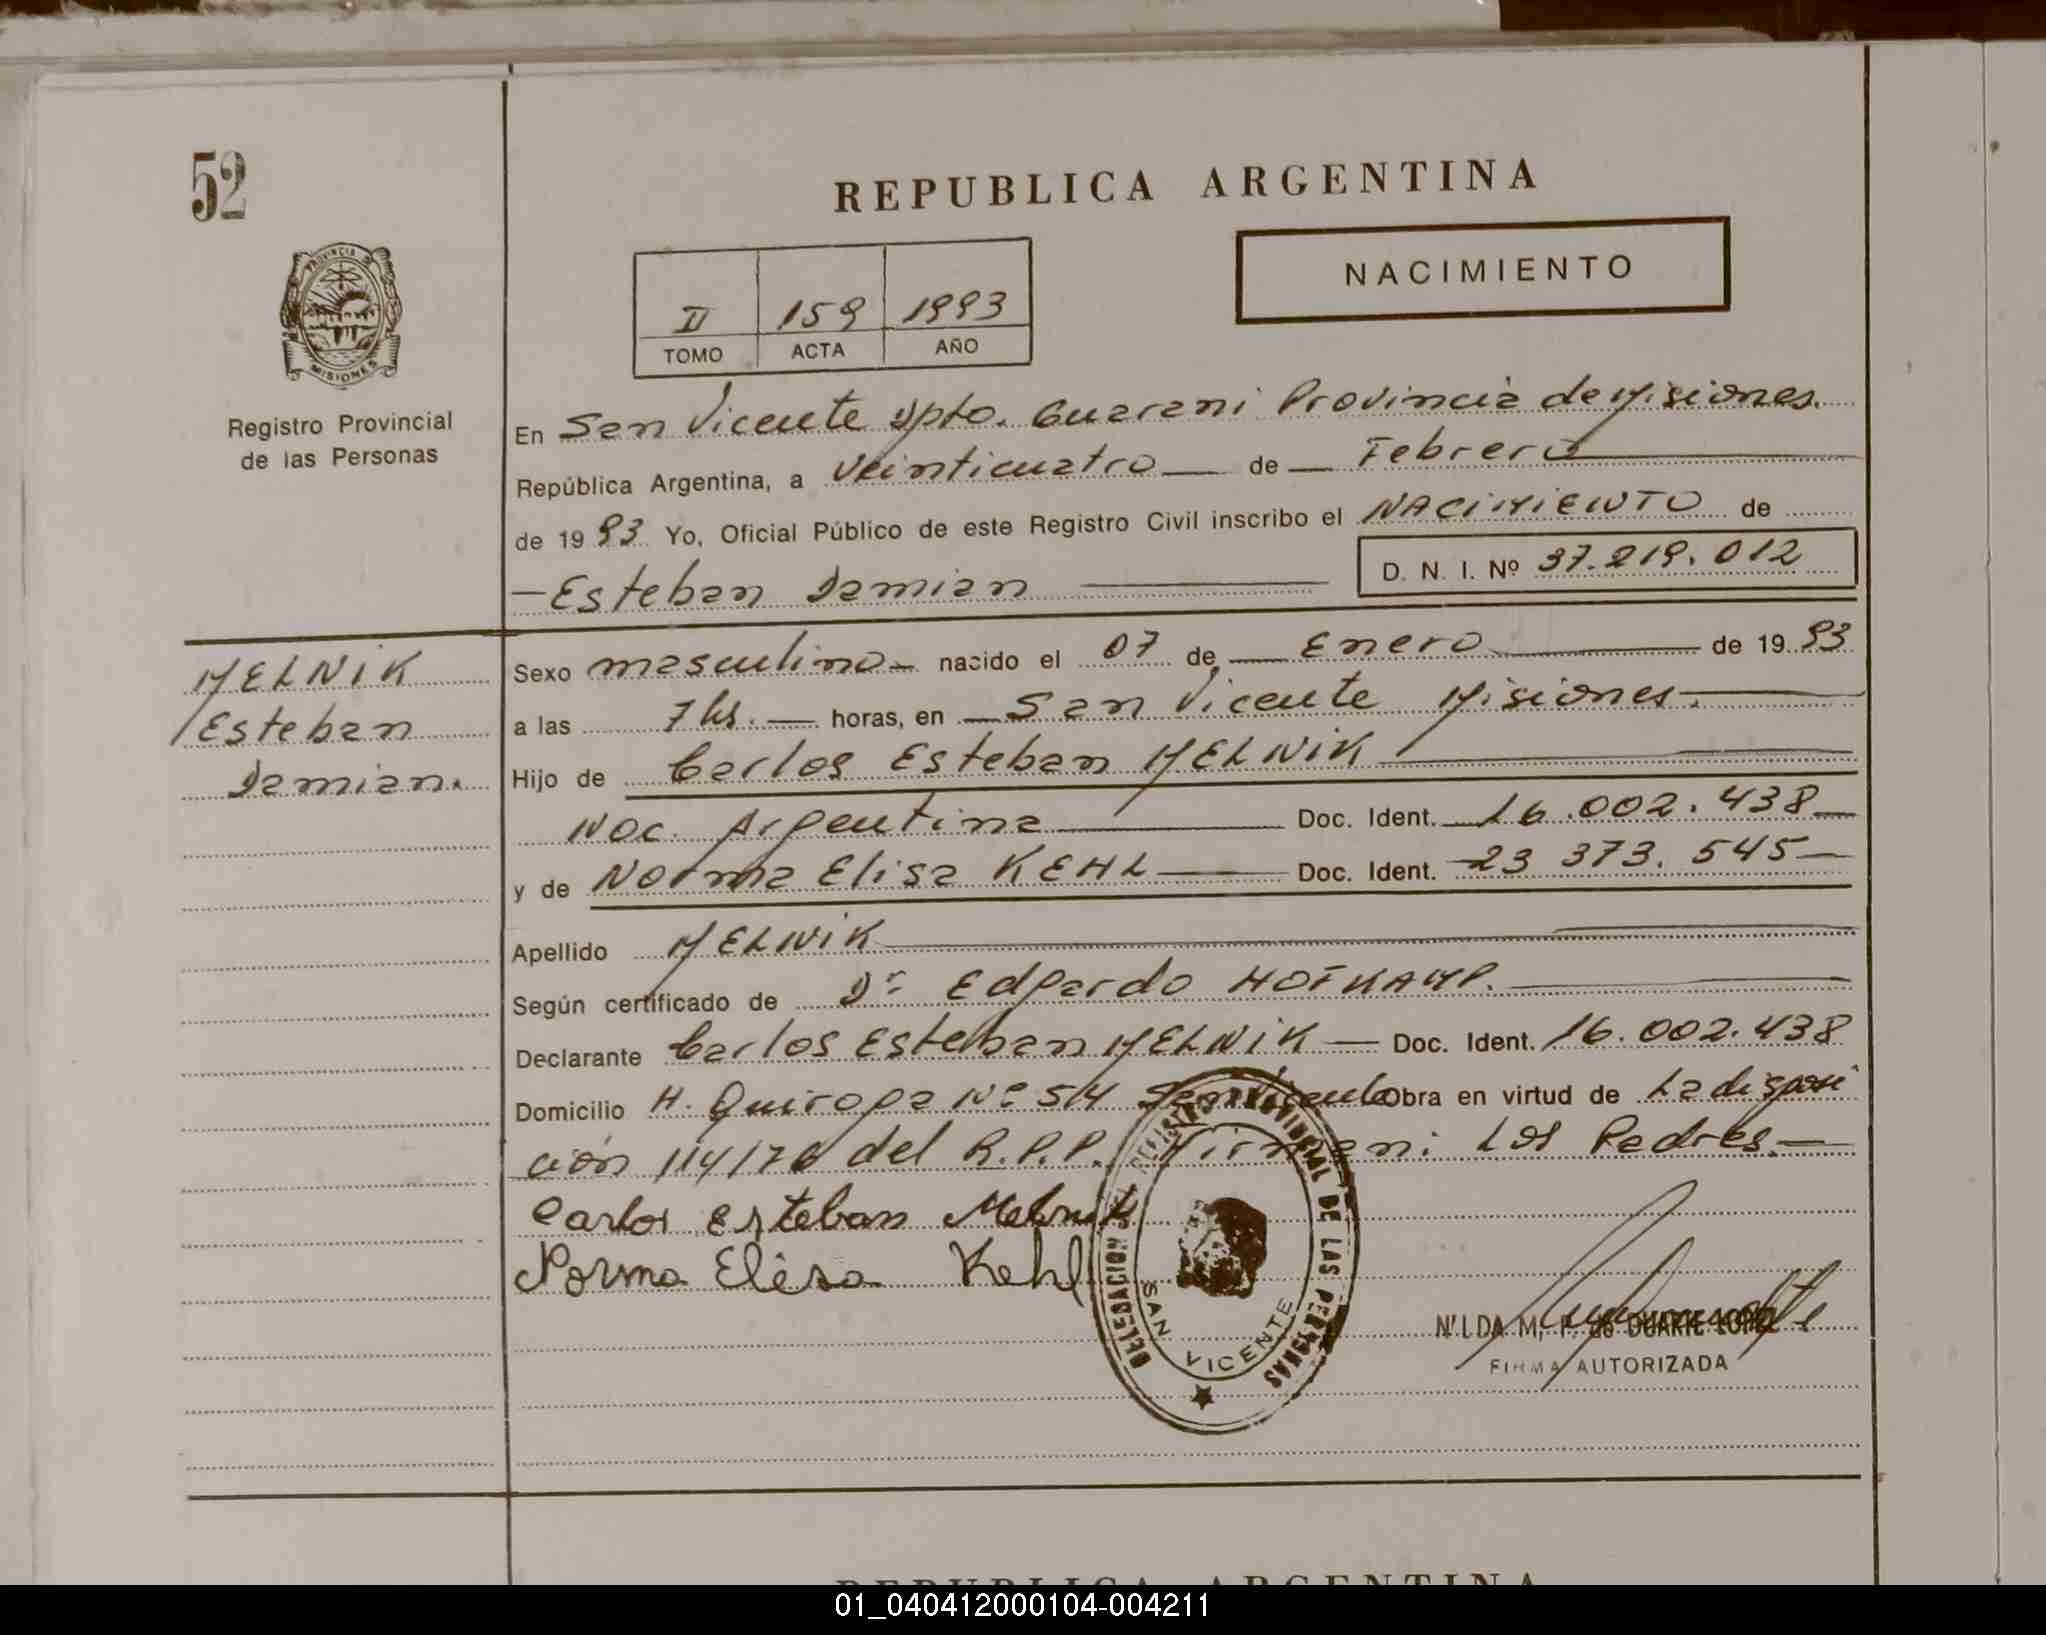 52
REPUBLICA ARGENTINA
NACIMIENTO
II 159 1993
TOMO ACTA AÑO
PROVINCIA DE
MISIONES
Registro Provincial
de las Personas
En San Vicente Dpto. Guarani Provincia de Misiones.
República Argentina, a Veinticuatro de Febrero
de 1993 Yo, Oficial Público de este Registro Civil inscribo el NACIMIENTO de
Esteban Damian D. N. I. Nº 37.219.012
MELNIK
Esteban
Damian.
Sexo masculino nacido el 07 de Enero de 1993
a las 7 hs. horas, en San Vicente Misiones.
Hijo de Carlos Esteban MELNIK
Nac. Argentina Doc. Ident. 16.002.438
y de Norma Elisa KEHL Doc. Ident. 23 373.545
Apellido MELNIK
Según certificado de Dr. Edgardo HOFKAMP.
Declarante Carlos Esteban MELNIK Doc. Ident. 16.002.438
Domicilio H. Quiroga Nº 514 San Vicente Obra en virtud de La disposi
ción 114/76 del R.P.P. Firman: Los Padres.
Carlos Esteban Melnik
Norma Elisa Kehl
DELEGACION DEL REGISTRO PROVINCIAL DE LAS PERSONAS
SAN VICENTE
NILDA M. F. de DUARTE LOPEZ
FIRMA AUTORIZADA
REPUBLICA ARGENTINA
01_040412000104-004211